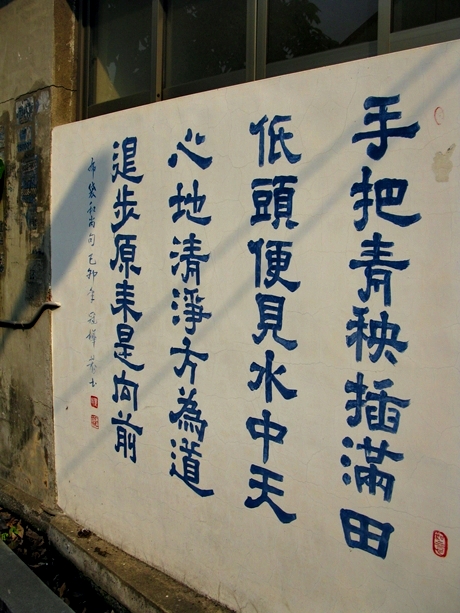 手把青秧插滿田
低頭便見水中天
心地清淨方為道
退步原來是向前
布袋和尚句 己卯年